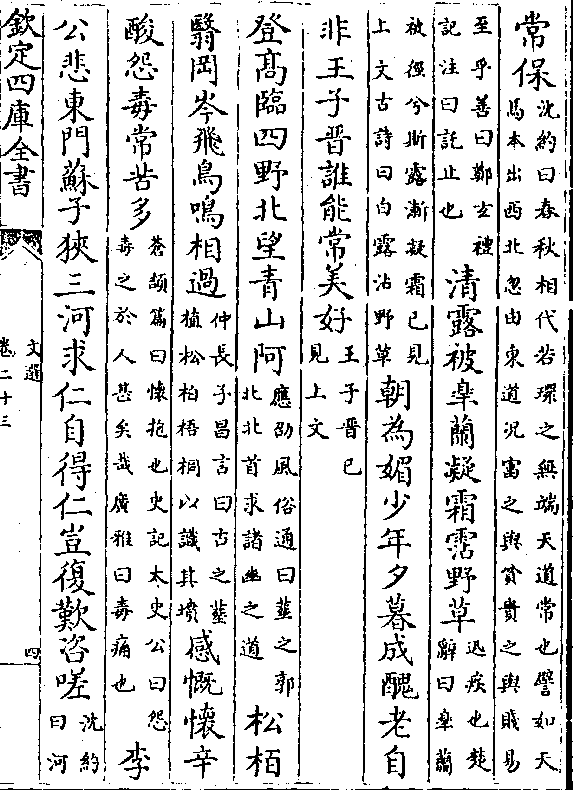 常保沈約曰春秋相代若環之無端天道常也譬如天馬本出西北忽由東道況富之與貧貴之與賤易
至乎善曰鄭玄禮記注曰託止也清露被皐蘭凝霜霑野草迅疾也楚辭曰皐蘭
被徑兮斯露漸凝霜已見上文古詩曰白露沾野草朝為媚少年夕暮成醜老自
非王子晉誰能常美好王子晉已見上文
登髙臨四野北望青山阿應劭風俗通曰葬之郭北北首求諸幽之道松栢
翳岡岑飛鳥鳴相過仲長子昌言曰古之葬植松柏梧桐以識其墳感慨懷辛
酸怨毒常苦多蒼頡篇曰懷抱也史記太史公曰怨毒之於人甚矣哉廣雅曰毒痛也李
公悲東門蘇子狹三河求仁自得仁豈復歎咨嗟沈約曰河
欽定四庫全書
文選
卷二十三
四